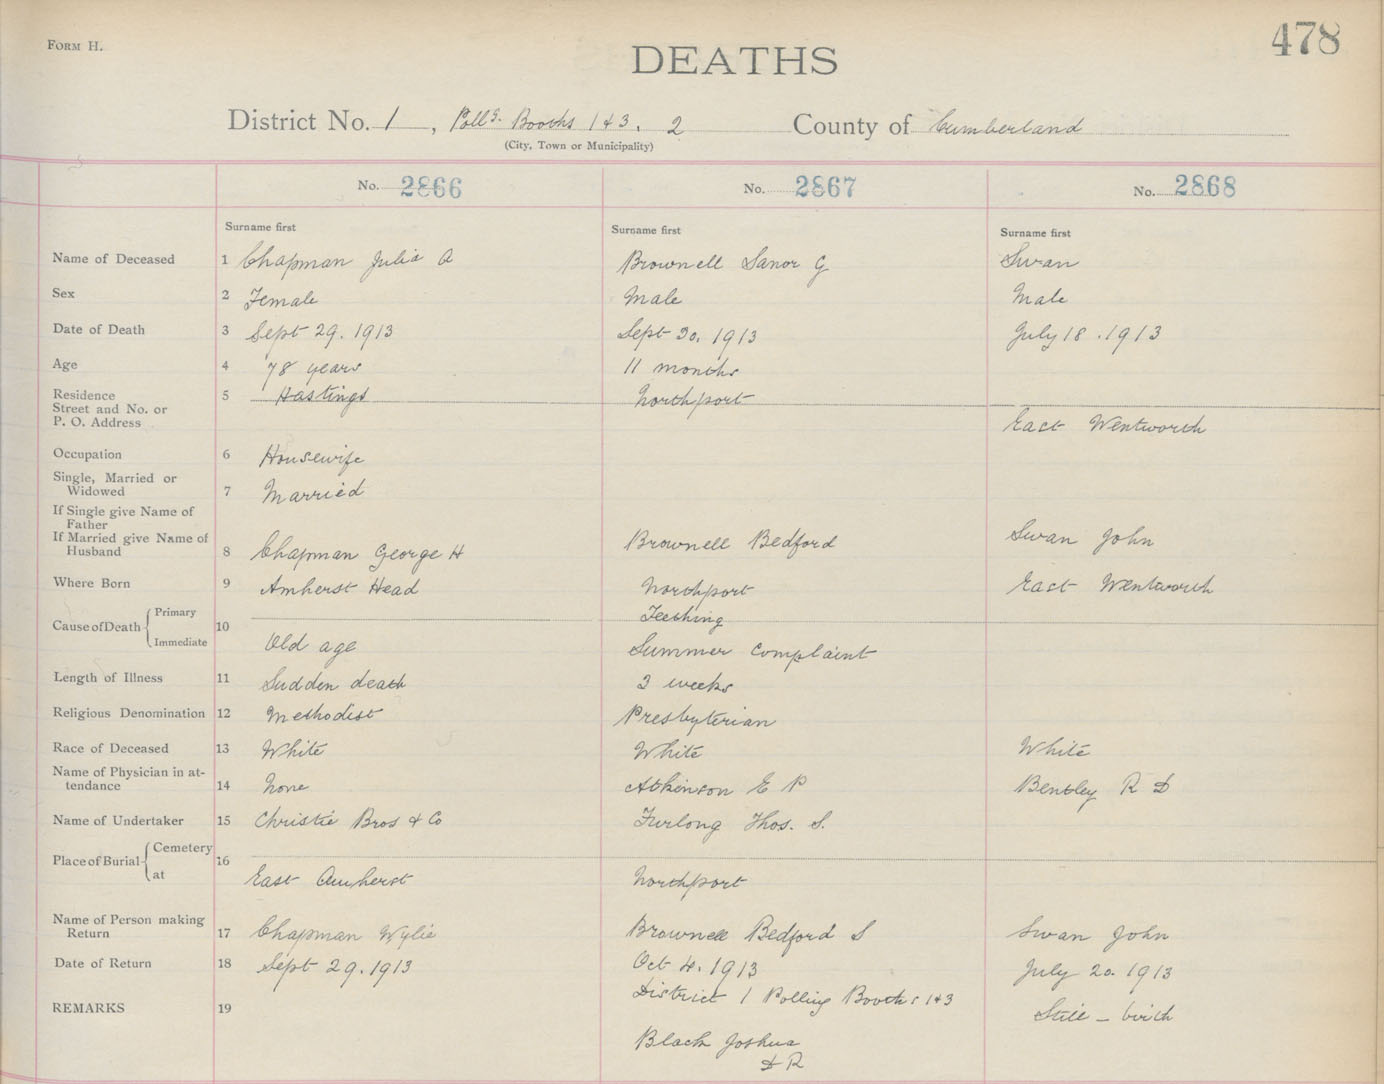 FORM H.
478
DEATHS
District No. 1, Pollg. Booths 1 & 3. 2 County of Cumberland
(City, Town or Municipality)
No. 2866 No. 2867 No. 2868
Surname first Surname first Surname first
Name of Deceased 1 Chapman Julia A Brownell Sanor G Swan
Sex 2 Female Male Male
Date of Death 3 Sept 29. 1913 Sept 30. 1913 July 18. 1913
Age 4 78 years 11 months
Residence 5 Hastings Northport
Street and No. or
P. O. Address East Wentworth
Occupation 6 Housewife
Single, Married or
Widowed 7 Married
If Single give Name of
Father
If Married give Name of
Husband 8 Chapman George H Brownell Bedford Swan John
Where Born 9 Amherst Head Northport East Wentworth
Cause of Death Primary 10 Teething
Immediate Old age Summer complaint
Length of Illness 11 Sudden death 3 weeks
Religious Denomination 12 Methodist Presbyterian
Race of Deceased 13 White White White
Name of Physician in at-
tendance 14 None Atkinson E P Bentley R D
Name of Undertaker 15 Christie Bros & Co Furlong Thos. S.
Place of Burial Cemetery 16
at East Amherst Northport
Name of Person making
Return 17 Chapman Wylie Brownell Bedford S Swan John
Date of Return 18 Sept 29. 1913 Oct 4. 1913 July 20. 1913
District 1 Polling Booths 1 & 3
REMARKS 19 Still - birth
Black Joshua
D R